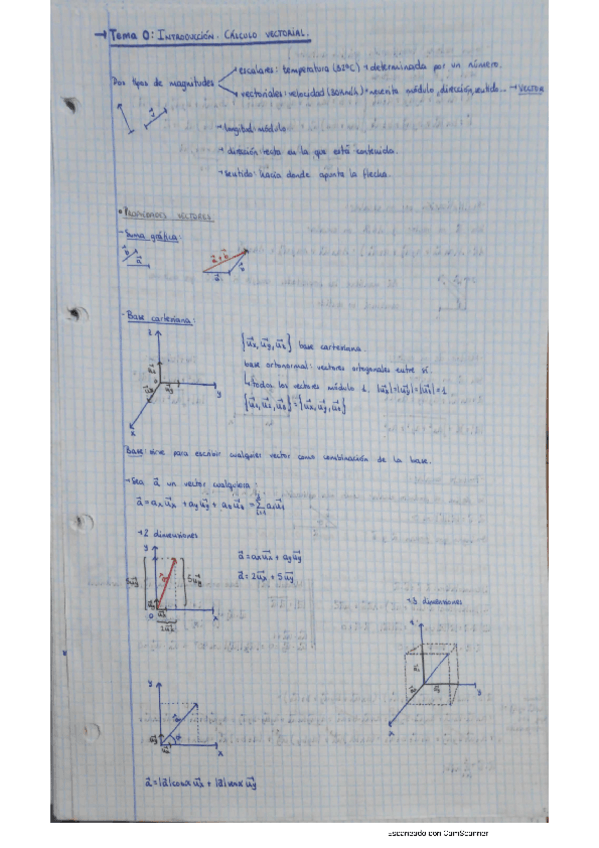 → Tema 0: INTRODUCCIÓN. CÁLCULO VECTORIAL.
→ escalares: temperatura (32ºC) → determinada por un número.
Dos tipos de magnitudes
→ vectoriales: velocidad (30km/h) → necesita módulo, dirección, sentido... → VECTOR
→ longitud: módulo
→ dirección: recta en la que está contenido.
→ sentido: hacia donde apunta la flecha.
• PROPIEDADES VECTORES
- Suma gráfica:
- Base cartesiana:
{u⃗x, u⃗y, u⃗z} base cartesiana
base ortonormal: vectores ortogonales entre sí.
↳ todos los vectores módulo 1. |u⃗x|=|u⃗y|=|u⃗z|=1
{u⃗1, u⃗2, u⃗3} = {u⃗x, u⃗y, u⃗z}
Base: sirve para escribir cualquier vector como combinación de la base.
→ Sea a⃗ un vector cualquiera:
a⃗ = ax u⃗x + ay u⃗y + az u⃗z = Σ ai u⃗i
→ 2 dimensiones
a⃗ = ax u⃗x + ay u⃗y
a⃗ = 2u⃗x + 5u⃗y
5u⃗y
5u⃗y
2u⃗x
→ 3 dimensiones
a⃗ = |a⃗| cosα u⃗x + |a⃗| senα u⃗y
Escaneado con CamScanner